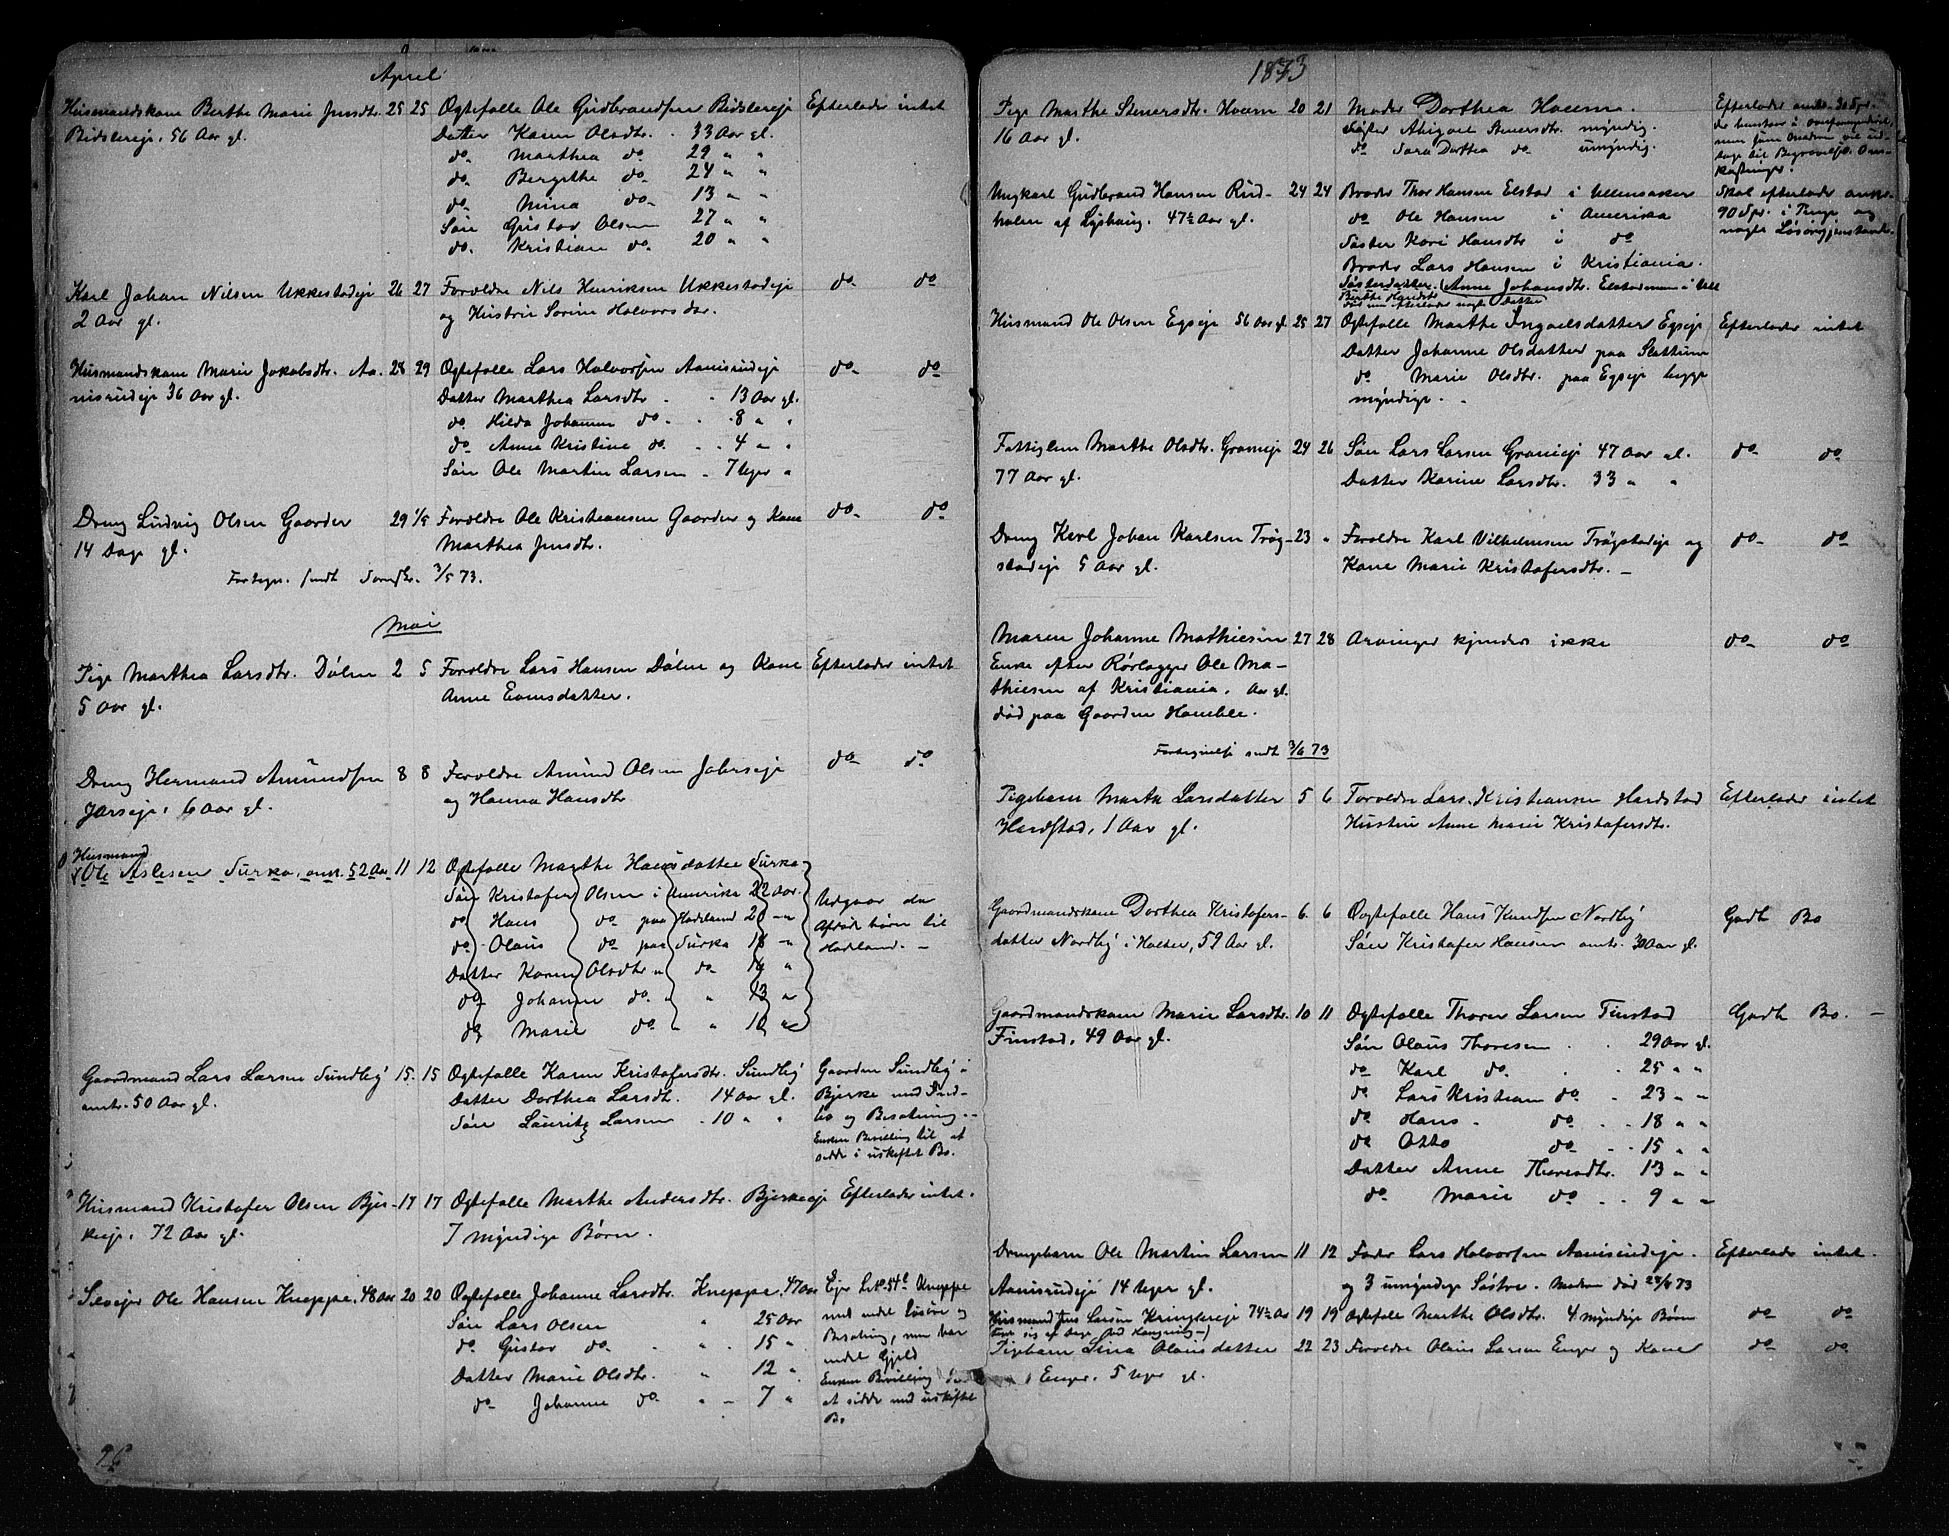 April
Husmandskone Berthe Marie Jensdtr. 25 25 Ægtefælle Ole Gudbrandsen Bidslereje Efterlader intet
Bidslereje. 56 Aar gl. Datter Karen Olsdtr. . 33 Aar gl.
do Marthea do 29 " "
do Bergithe do 24 " "
do Mina do 13 " "
Søn Gustav Olsen 27 " "
do. Kristian do 20 " "
Karl Johan Nilsen Ukkestadeje 26 27 Forældre Nils Henriksen Ukkestadeje do do
2 Aar gl. og Hustru Sorine Halvorsdtr.
Husmandskone Marie Jakobsdtr. Aa- 28 29 Ægtefælle Lars Halvorsen Aamisrudeje do do
misrudeje 36 Aar gl. Datter Marthea Larsdtr . . 13 Aar gl.
do. Hilda Johanne do . . 8 " "
do Anne Kristine do. . . 4 " "
Søn Ole Martin Larsen . 7 Uger "
Dreng Ludvig Olsen Gaarder 29 1/5 Forældre Ole Kristiansen Gaarder og Kone do do
14 Dage gl. Marthea Jensdtr.
Fortegn. sendt Sorenskr. 3/5 73.
Mai
Pige Marthea Larsdtr. Dølen 2 5 Forældre Lars Hansen Dølen og Kone Efterlader intet
5 Aar gl. Anne Evensdatter.
Dreng Hermand Amundsen 8 8 Forældre Amund Olsen Jahrseje do do
Jarseje. 6 Aar gl. og Hanna Hansdtr
Husmand
Ole Aslesen Surka, omtr. 52 Aar 11 12 Ægtefælle Marthe Hansdatter Surka
Søn Kristofer Olsen i Amerika 22 Aar. Udgaar da
do Hans do paa Hadeland 20 " Afdøde hører til
do Olaus do paa Surka 18 " Hadeland.
Datter Karen Olsdtr " do 16 "
do Johanne do. " " 13 "
do Marie do. " " 10 "
Gaardmand Lars Larsen Sundby 15. 15 Ægtefælle Karen Kristofersdtr. Sundby Gaarden Sundby i
omtr. 50 Aar gl. Datter Dorthea Larsdt. 14 Aar gl. Bjerke med Ind-
Søn Lauritz Larsen . 10 " " bo og Besætning.
Enken Bevilling til at
sidde i uskiftet Bo.
Husmand Kristofer Olsen Bjer- 17 17 Ægtefælle Marthe Andersdtr. Bjerkeeje Efterlader intet.
keeje. 72 Aar gl. 7 myndige Børn.
Selvejer Ole Hansen Kneppe. 48 Aar 20 20 Ægtefælle Johanne Larsdtr. Kneppe. 47 Aar Ejer L No 54 Kneppe
Søn Lars Olsen " 25 Aar med endel Løsøre og
do. Gustav do. " 15 " Besætning, men har
endel Gjæld
Datter Marie Olsdtr. " 12 " Enken Bevilling
do Johanne do " 7 " at sidde med uskiftet
Bo
96
1873
Pige Marthe Steversdtr. Hoem 20 21 Moder Dorthea Hoem. Efterlader omtr. 30 Spr.
16 Aar gl. Søster Abigael Steversdtr. myndig. der henstaar i Overformynderiet,
do Sara Dorthea do umyndig. men som Moderen vil ud-
tage til Begravelse Om-
kostninger.
Ungkarl Gudbrand Hansen Rud- 24 24 Broder Thor Hansen Elstad i Ullensaker Skal efterlade omtr.
holen af Lyshaug. 47½ Aar gl. do Ole Hansen i Amerika 90 Spr. i Penge og
Søster Kari Hansdtr i do nogle Løsøregjenstande.
Broder Lars Hansen i Kristiania.
Søsterdatter. (Anne Johansdtr. Elstadmoen i Ull
Berthe Hansdtr
død men efterlader nogle Datter
Husmand Ole Olsen Egseje 56 Aar gl 25 27 Ægtefælle Marthe Ingvalsdatter Egseje Efterlader intet
Datter Johanne Olsdatter paa Slattum
do Marie Olsdtr. paa Egseje begge
myndige.
Fattiglem Marthe Olsdtr. Graneje 24 26 Søn Lars Larsen Graneje 47 Aar gl. do do
77 Aar gl. Datter Karine Larsdtr. 33 " "
Dreng Karl Johan Karlsen Trøg- 23 " Forældre Karl Vilhelmsen Trøgstadeje og do do
stadeje 5 Aar gl. Kone Marie Kristofersdtr. –
Maren Johanne Mathiesen 27 28 Arvinger kjendes ikke do do
Enke efter Rørlægger Ole Ma-
thiesen af Kristiania. Aar gl.
død paa Gaarden Homble.
Fortegnelse sendt 3/6 73
Pigebarn Marta Larsdatter 5 6 Forældre Lars Kristiansen Hardstad Efterlader intet
Hardstad, 1 Aar gl. Hustru Anne Marie Kristofersdtr.
Gaardmandskone Dorthea Kristofers- 6 6 Ægtefælle Hans Knudsen Nordby Godt Bo
datter Nordby i Holter, 59 Aar gl. Søn Kristofer Hansen omtr. 30 Aar gl.
Gaardmandskone Marie Larsdtr. 10 11 Ægtefælle Thorer Larsen Finstad Godt Bo. –
Finstad, 49 Aar gl. Søn Olaus Thoresen . . 29 Aar gl.
do Karl do. . . 25 " "
do Lars Kristian do . 23 " "
do Hans . do . . 18 " "
do Otto do . . 15 " "
Datter Anne Thoresdtr. . 13 " "
do Marie do . . 9 " "
Drengebarn Ole Martin Larsen 11 12 Fader Lars Halvorsen Aamisrudeje. Efterlader intet.
Aamisrudeje 14 Uger gl. og 3 umyndige Søstre. Moderen død 28/4 73
Husmand Jens Larsen Kringlereje 74½ Aar 19 19 Ægtefælle Marthe Olsdtr. 4 myndige Børn do do
sig af Dage ved Hængning –)
Pigebarn Lina Olausdatter 22 23 Forældre Olaus Larsen Enger og Kone do do
Enger. 5 Uger gl.